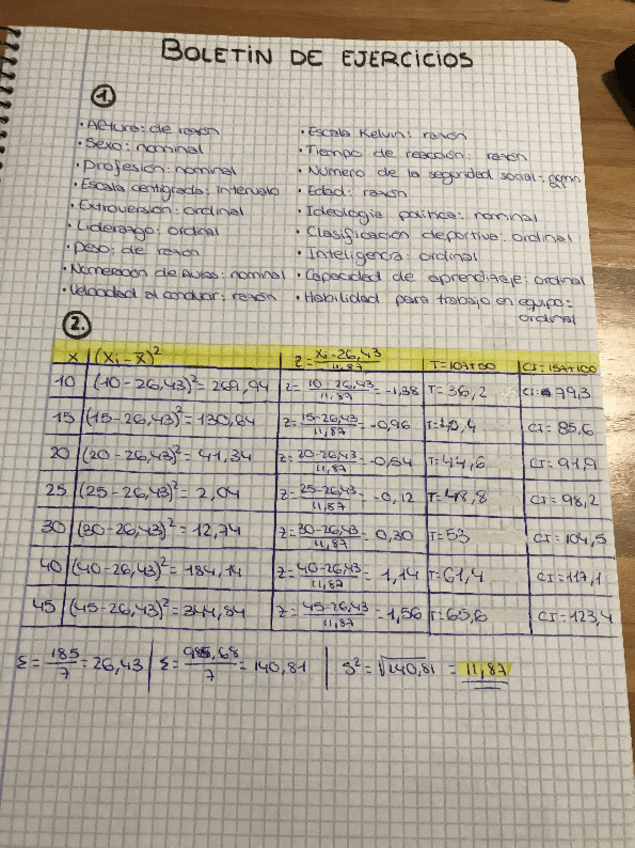 BOLETIN DE EJERCICIOS
1.
· Altura: de razón
· Sexo: nominal
· Profesión: nominal
· Escala centigrada: intervalo
· Extroversión: ordinal
· Liderazgo: ordinal
· Peso: de razón
· Numeracion de Aulas: nominal
· Velocidad al conducir: razón
· Escala Kelvin: razón
· Tiempo de reacción: razón
· Numero de la seguridad social: nomin
· Edad: razón
· Ideologia politica: nominal
· Clasificación deportiva: ordinal
· Inteligencia: ordinal
· Capacidad de aprendizaje: ordinal
· Habilidad para trabajo en equipo:
ordinal
2.
X (Xi-X̄)² Z=Xi-26,43/11,87 T=10z+50 CI=15z+100
10 (10-26,43)²=269,94 Z=10-26,43/11,87=-1,38 T=36,2 CI=79,3
15 (15-26,43)²=130,64 Z=15-26,43/11,87=-0,96 CI=85,6
20 (20-26,43)²=41,34 Z=20-26,43/11,87=-0,54 T=44,6 CI=91,9
25 (25-26,43)²=2,04 Z=25-26,43/11,87=-0,12 T=48,8 CI=98,2
30 (30-26,43)²=12,74 Z=30-26,43/11,87=0,30 T=53 CI=104,5
40 (40-26,43)²=184,14 Z=40-26,43/11,87=1,14 T=61,4 CI=117,1
45 (45-26,43)²=344,84 Z=45-26,43/11,87=1,56 T=65,6 CI=123,4
Σ=185/7=26,43 Σ=985,68/7=140,81 S²=√140,81=11,87